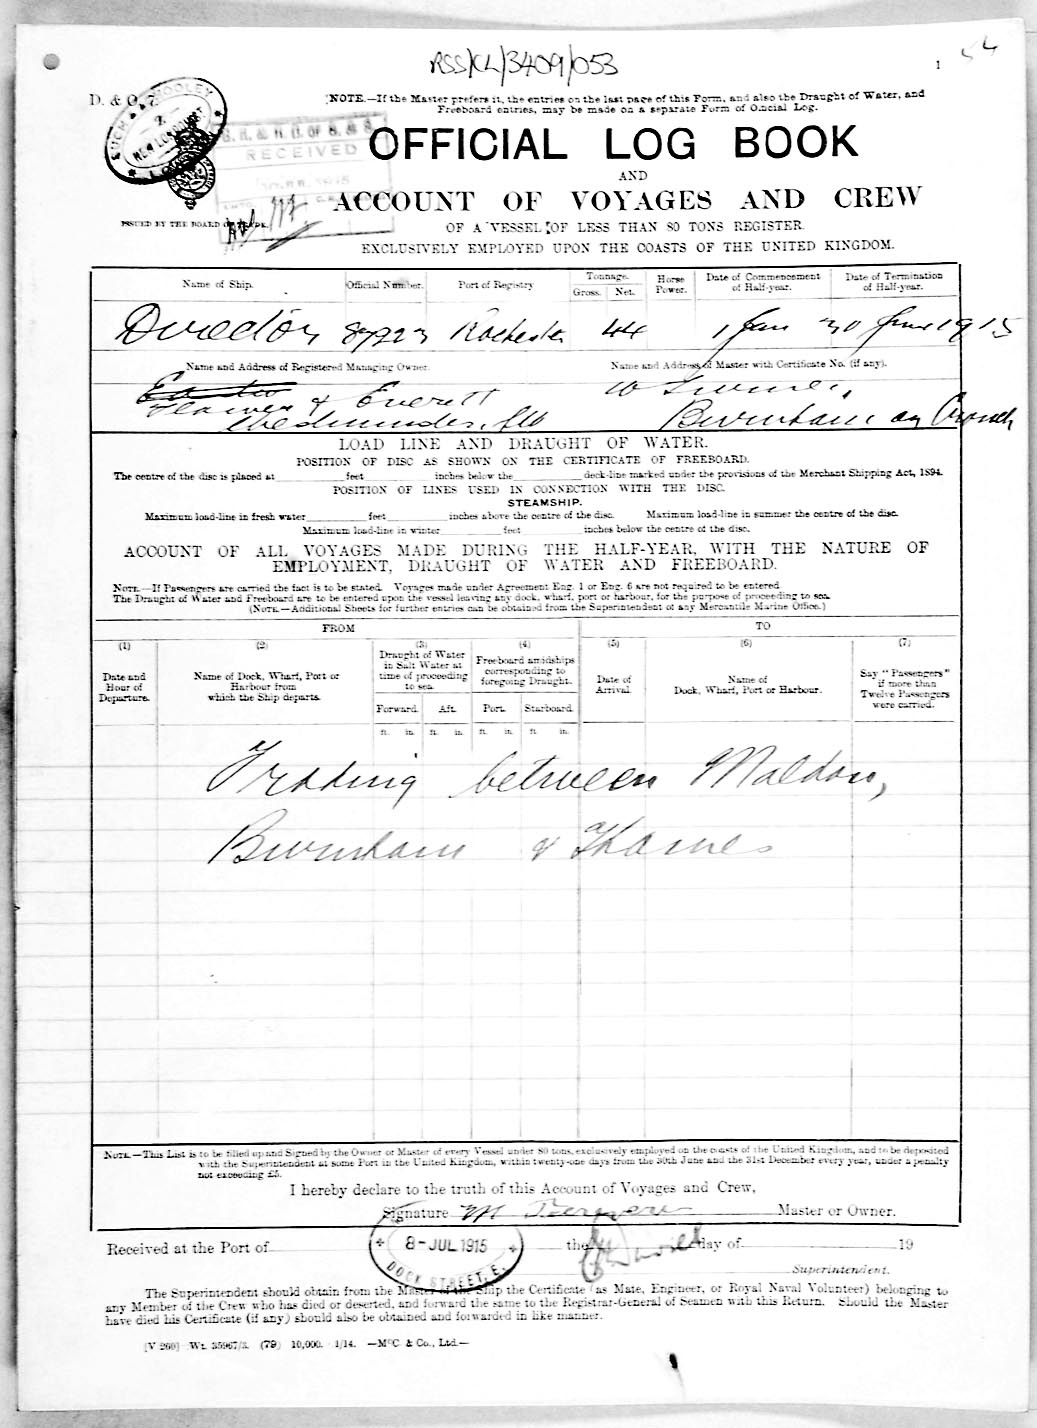 RSS/CL/3409/053
1 54
D. & O. 7.
NOTE.—If the Master prefers it, the entries on the last page of this Form, and also the Draught of Water, and
Freeboard entries, may be made on a separate Form of Official Log.
RECEIVED
OFFICIAL LOG BOOK
AND
ACCOUNT OF VOYAGES AND CREW
ISSUED BY THE BOARD OF TRADE.
OF A VESSEL OF LESS THAN 80 TONS REGISTER
EXCLUSIVELY EMPLOYED UPON THE COASTS OF THE UNITED KINGDOM.
Name of Ship. Official Number. Port of Registry Tonnage. Gross. Net. Horse Power. Date of Commencement of Half-year. Date of Termination of Half-year.
Director Rochester 44 1 Jan 30 June 1915
Name and Address of Registered Managing Owner. Name and Address of Master with Certificate No. (if any).
& Everett W
Burnham on Crouch
LOAD LINE AND DRAUGHT OF WATER.
POSITION OF DISC AS SHOWN ON THE CERTIFICATE OF FREEBOARD.
The centre of the disc is placed at feet inches below the deck-line marked under the provisions of the Merchant Shipping Act, 1894.
POSITION OF LINES USED IN CONNECTION WITH THE DISC.
STEAMSHIP.
Maximum load-line in fresh water feet inches above the centre of the disc. Maximum load-line in summer the centre of the disc.
Maximum load-line in winter feet inches below the centre of the disc.
ACCOUNT OF ALL VOYAGES MADE DURING THE HALF-YEAR, WITH THE NATURE OF
EMPLOYMENT, DRAUGHT OF WATER AND FREEBOARD.
NOTE.—If Passengers are carried the fact is to be stated. Voyages made under Agreement Eng. 1 or Eng. 6 are not required to be entered.
The Draught of Water and Freeboard are to be entered upon the vessel leaving any dock, wharf, port or harbour, for the purpose of proceeding to sea.
(NOTE.—Additional Sheets for further entries can be obtained from the Superintendent of any Mercantile Marine Office.)
FROM TO
(1) (2) (3) (4) (5) (6) (7)
Date and Hour of Departure. Name of Dock, Wharf, Port or Harbour from which the Ship departs. Draught of Water in Salt Water at time of proceeding to sea. Freeboard amidships corresponding to foregoing Draught. Date of Arrival. Name of Dock, Wharf, Port or Harbour. Say "Passengers" if more than Twelve Passengers were carried.
Forward. Aft. Port. Starboard.
ft. in. ft. in. ft. in. ft. in.
Trading between Maldon,
Burnham & Thames
NOTE.—This List is to be filled up and Signed by the Owner or Master of every Vessel under 80 tons, exclusively employed on the coasts of the United Kingdom, and to be deposited
with the Superintendent at some Port in the United Kingdom, within twenty-one days from the 30th June and the 31st December every year, under a penalty
not exceeding £5.
I hereby declare to the truth of this Account of Voyages and Crew,
Signature Master or Owner.
Received at the Port of the day of 19
8-JUL 1915
DOCK STREET, E.
Superintendent.
The Superintendent should obtain from the Master of the Ship the Certificate (as Mate, Engineer, or Royal Naval Volunteer) belonging to
any Member of the Crew who has died or deserted, and forward the same to the Registrar-General of Seamen with this Return. Should the Master
have died his Certificate (if any) should also be obtained and forwarded in like manner.
[V 260] Wt. 35967/3. (79) 10,000. 1/14. —McC. & Co., Ltd.—